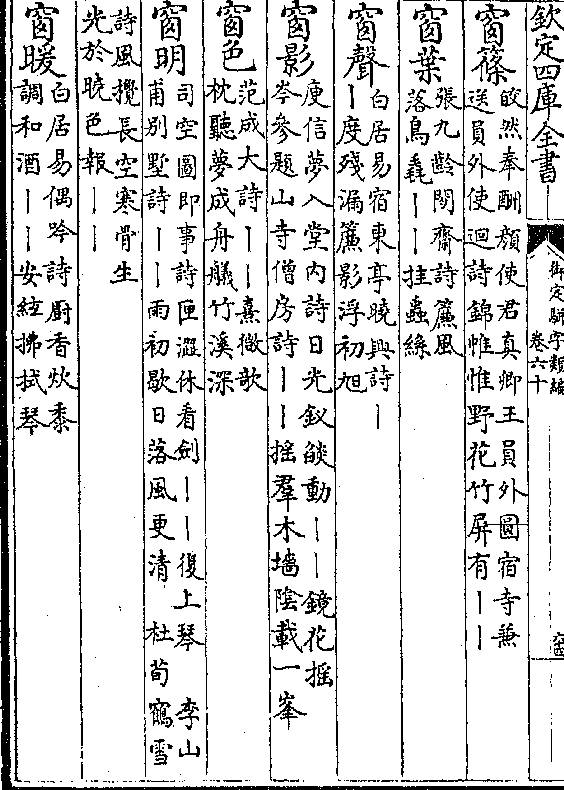 欽定四庫全書
御定駢字類編
卷六十
窗篠
皎然奉酬顔使君真卿王員外圓宿寺兼
送員外使迴詩錦帷惟野花竹屏有丨丨
窗葉
張九齡閑齋詩簾風
落鳥毳丨丨挂蟲絲
窗聲
白居易宿東亭曉興詩丨
丨度殘漏簾影浮初旭
窗影
庾信夢入堂内詩日光釵燄動丨丨鏡花摇
岑參題山寺僧房詩丨丨摇羣木墻陰載一峯
窗色
范成大詩丨丨熹微歌
枕聽夢成舟艤竹溪深
窗明
司空圖即事詩匣澀休看劍丨丨復上琴 李山
甫别墅詩丨丨雨初歇日落風更清 杜荀鶴雪
詩風攪長空寒骨生
光於曉色報丨丨
窗暖
白居易偶吟詩厨香炊黍
調和酒丨丨安絃拂拭琴